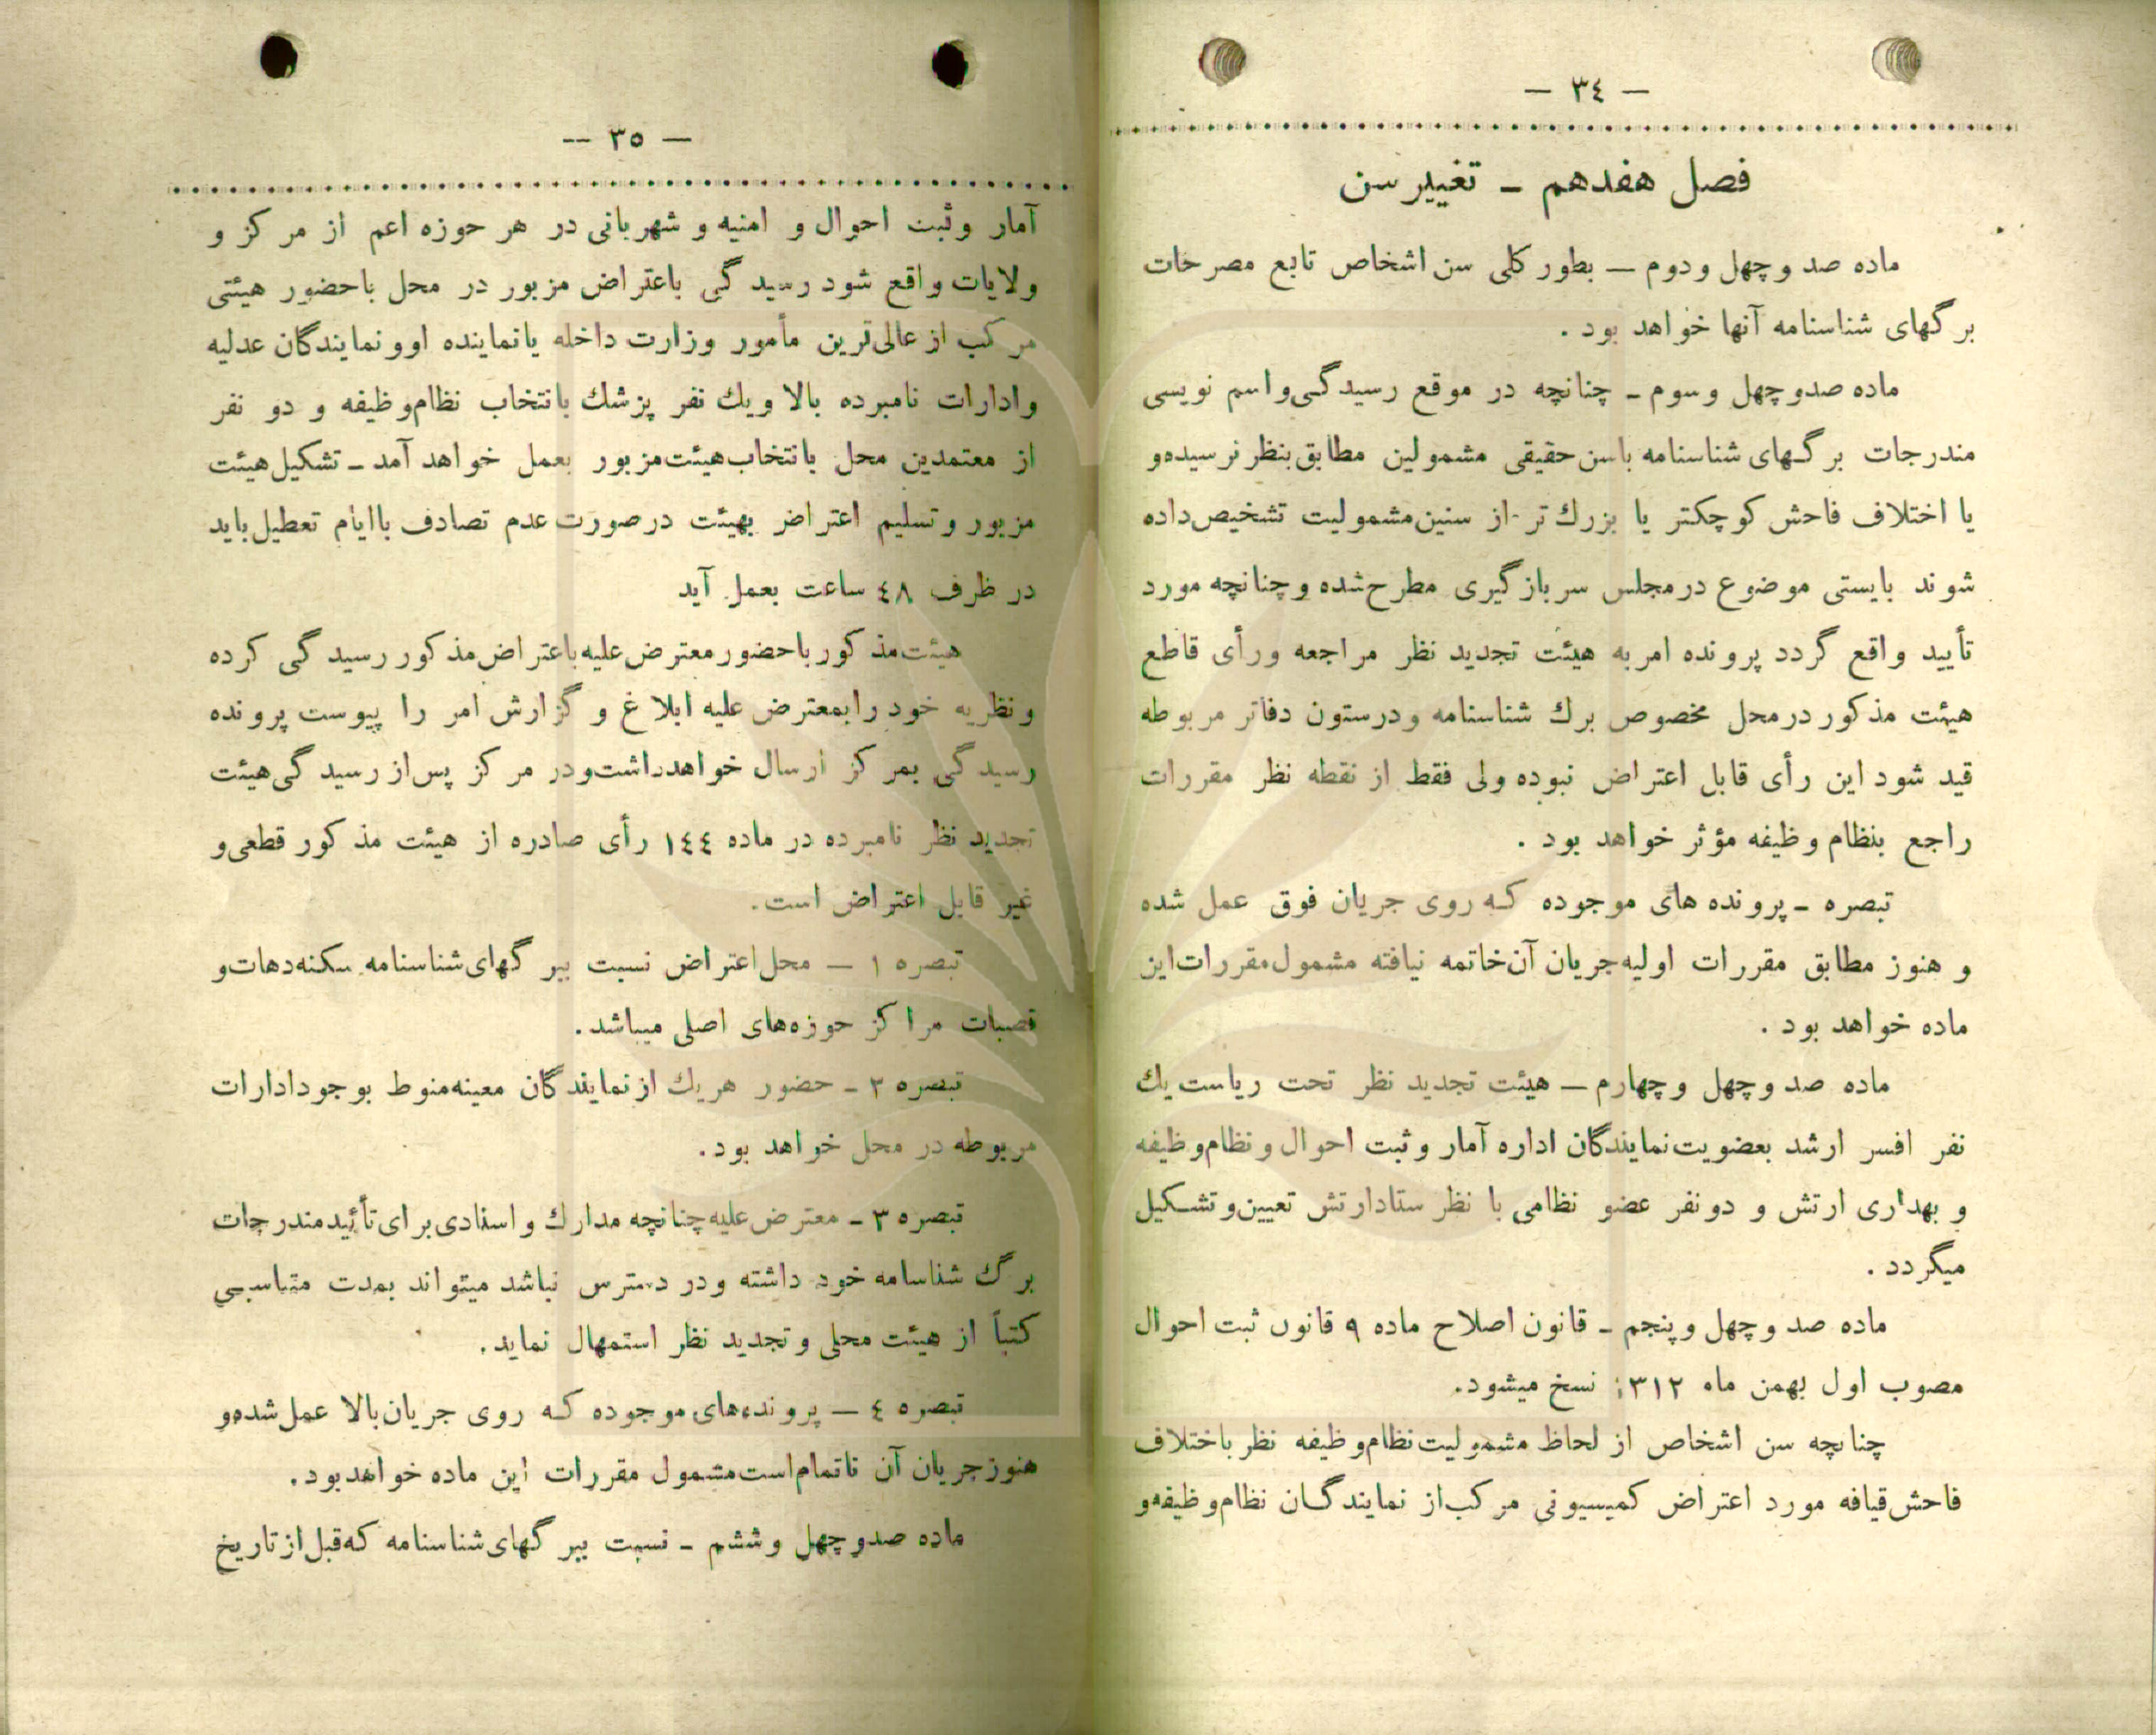 — ٣٤ —
فصل هفدهم ـ تغییر سن
ماده صد و چهل و دوم — بطور کلی سن اشخاص تابع مصرحات
برگهای شناسنامه آنها خواهد بود .
ماده صد و چهل و سوم ـ چنانچه در موقع رسیدگی و اسم نویسی
مندرجات برگهای شناسنامه با سن حقیقی مشمولین مطابق بنظر نرسیده و
یا اختلاف فاحش کوچکتر یا بزرك تر از سنین مشمولیت تشخیص داده
شوند بایستی موضوع در مجلس سربازگیری مطرح شده و چنانچه مورد
تأیید واقع گردد پرونده امر به هیئت تجدید نظر مراجعه و رأی قاطع
هیئت مذکور در محل مخصوص برك شناسنامه و در ستون دفاتر مربوطه
قید شود این رأی قابل اعتراض نبوده ولی فقط از نقطه نظر مقررات
راجع بنظام وظیفه مؤثر خواهد بود .
تبصره ـ پرونده های موجوده که روی جریان فوق عمل شده
و هنوز مطابق مقررات اولیه جریان آن خاتمه نیافته مشمول مقررات این
ماده خواهد بود .
ماده صد و چهل و چهارم — هیئت تجدید نظر تحت ریاست یك
نفر افسر ارشد بعضویت نمایندگان اداره آمار و ثبت احوال و نظام وظیفه
و بهداری ارتش و دو نفر عضو نظامی با نظر ستاد ارتش تعیین و تشکیل
میگردد .
ماده صد و چهل و پنجم ـ قانون اصلاح ماده ٩ قانون ثبت احوال
مصوب اول بهمن ماه ١٣١٢ نسخ میشود.
چنانچه سن اشخاص از لحاظ مشمولیت نظام وظیفه نظر باختلاف
فاحش قیافه مورد اعتراض کمیسیونی مرکب از نمایندگان نظام وظیفه و
— ٣٥ —
آمار و ثبت احوال و امنیه و شهربانی در هر حوزه اعم از مرکز و
ولایات واقع شود رسیدگی باعتراض مزبور در محل با حضور هیئتی
مرکب از عالی‌ترین مأمور وزارت داخله یا نماینده او و نمایندگان عدلیه
و ادارات نامبرده بالا و یك نفر پزشك بانتخاب نظام وظیفه و دو نفر
از معتمدین محل بانتخاب هیئت مزبور بعمل خواهد آمد ـ تشکیل هیئت
مزبور و تسلیم اعتراض بهیئت در صورت عدم تصادف با ایام تعطیل باید
در ظرف ٤٨ ساعت بعمل آید
هیئت مذکور با حضور معترض علیه باعتراض مذکور رسیدگی کرده
و نظریه خود را بمعترض علیه ابلاغ و گزارش امر را پیوست پرونده
رسیدگی بمرکز ارسال خواهد داشت و در مرکز پس از رسیدگی هیئت
تجدید نظر نامبرده در ماده ١٤٤ رأی صادره از هیئت مذکور قطعی و
غیر قابل اعتراض است.
تبصره ١ — محل اعتراض نسبت ببرگهای شناسنامه سکنه دهات و
قصبات مراکز حوزه‌های اصلی میباشد.
تبصره ٢ ـ حضور هر یك از نمایندگان معینه منوط بوجود ادارات
مربوطه در محل خواهد بود.
تبصره ٣ ـ معترض علیه چنانچه مدارك و اسنادی برای تأئید مندرجات
برگ شناسامه خود داشته و در دسترس نباشد میتواند بمدت متناسبی
کتباً از هیئت محلی و تجدید نظر استمهال نماید.
تبصره ٤ — پرونده‌های موجوده که روی جریان بالا عمل شده و
هنوز جریان آن ناتمام است مشمول مقررات این ماده خواهد بود.
ماده صد و چهل و ششم ـ نسبت ببرگهای شناسنامه که قبل از تاریخ